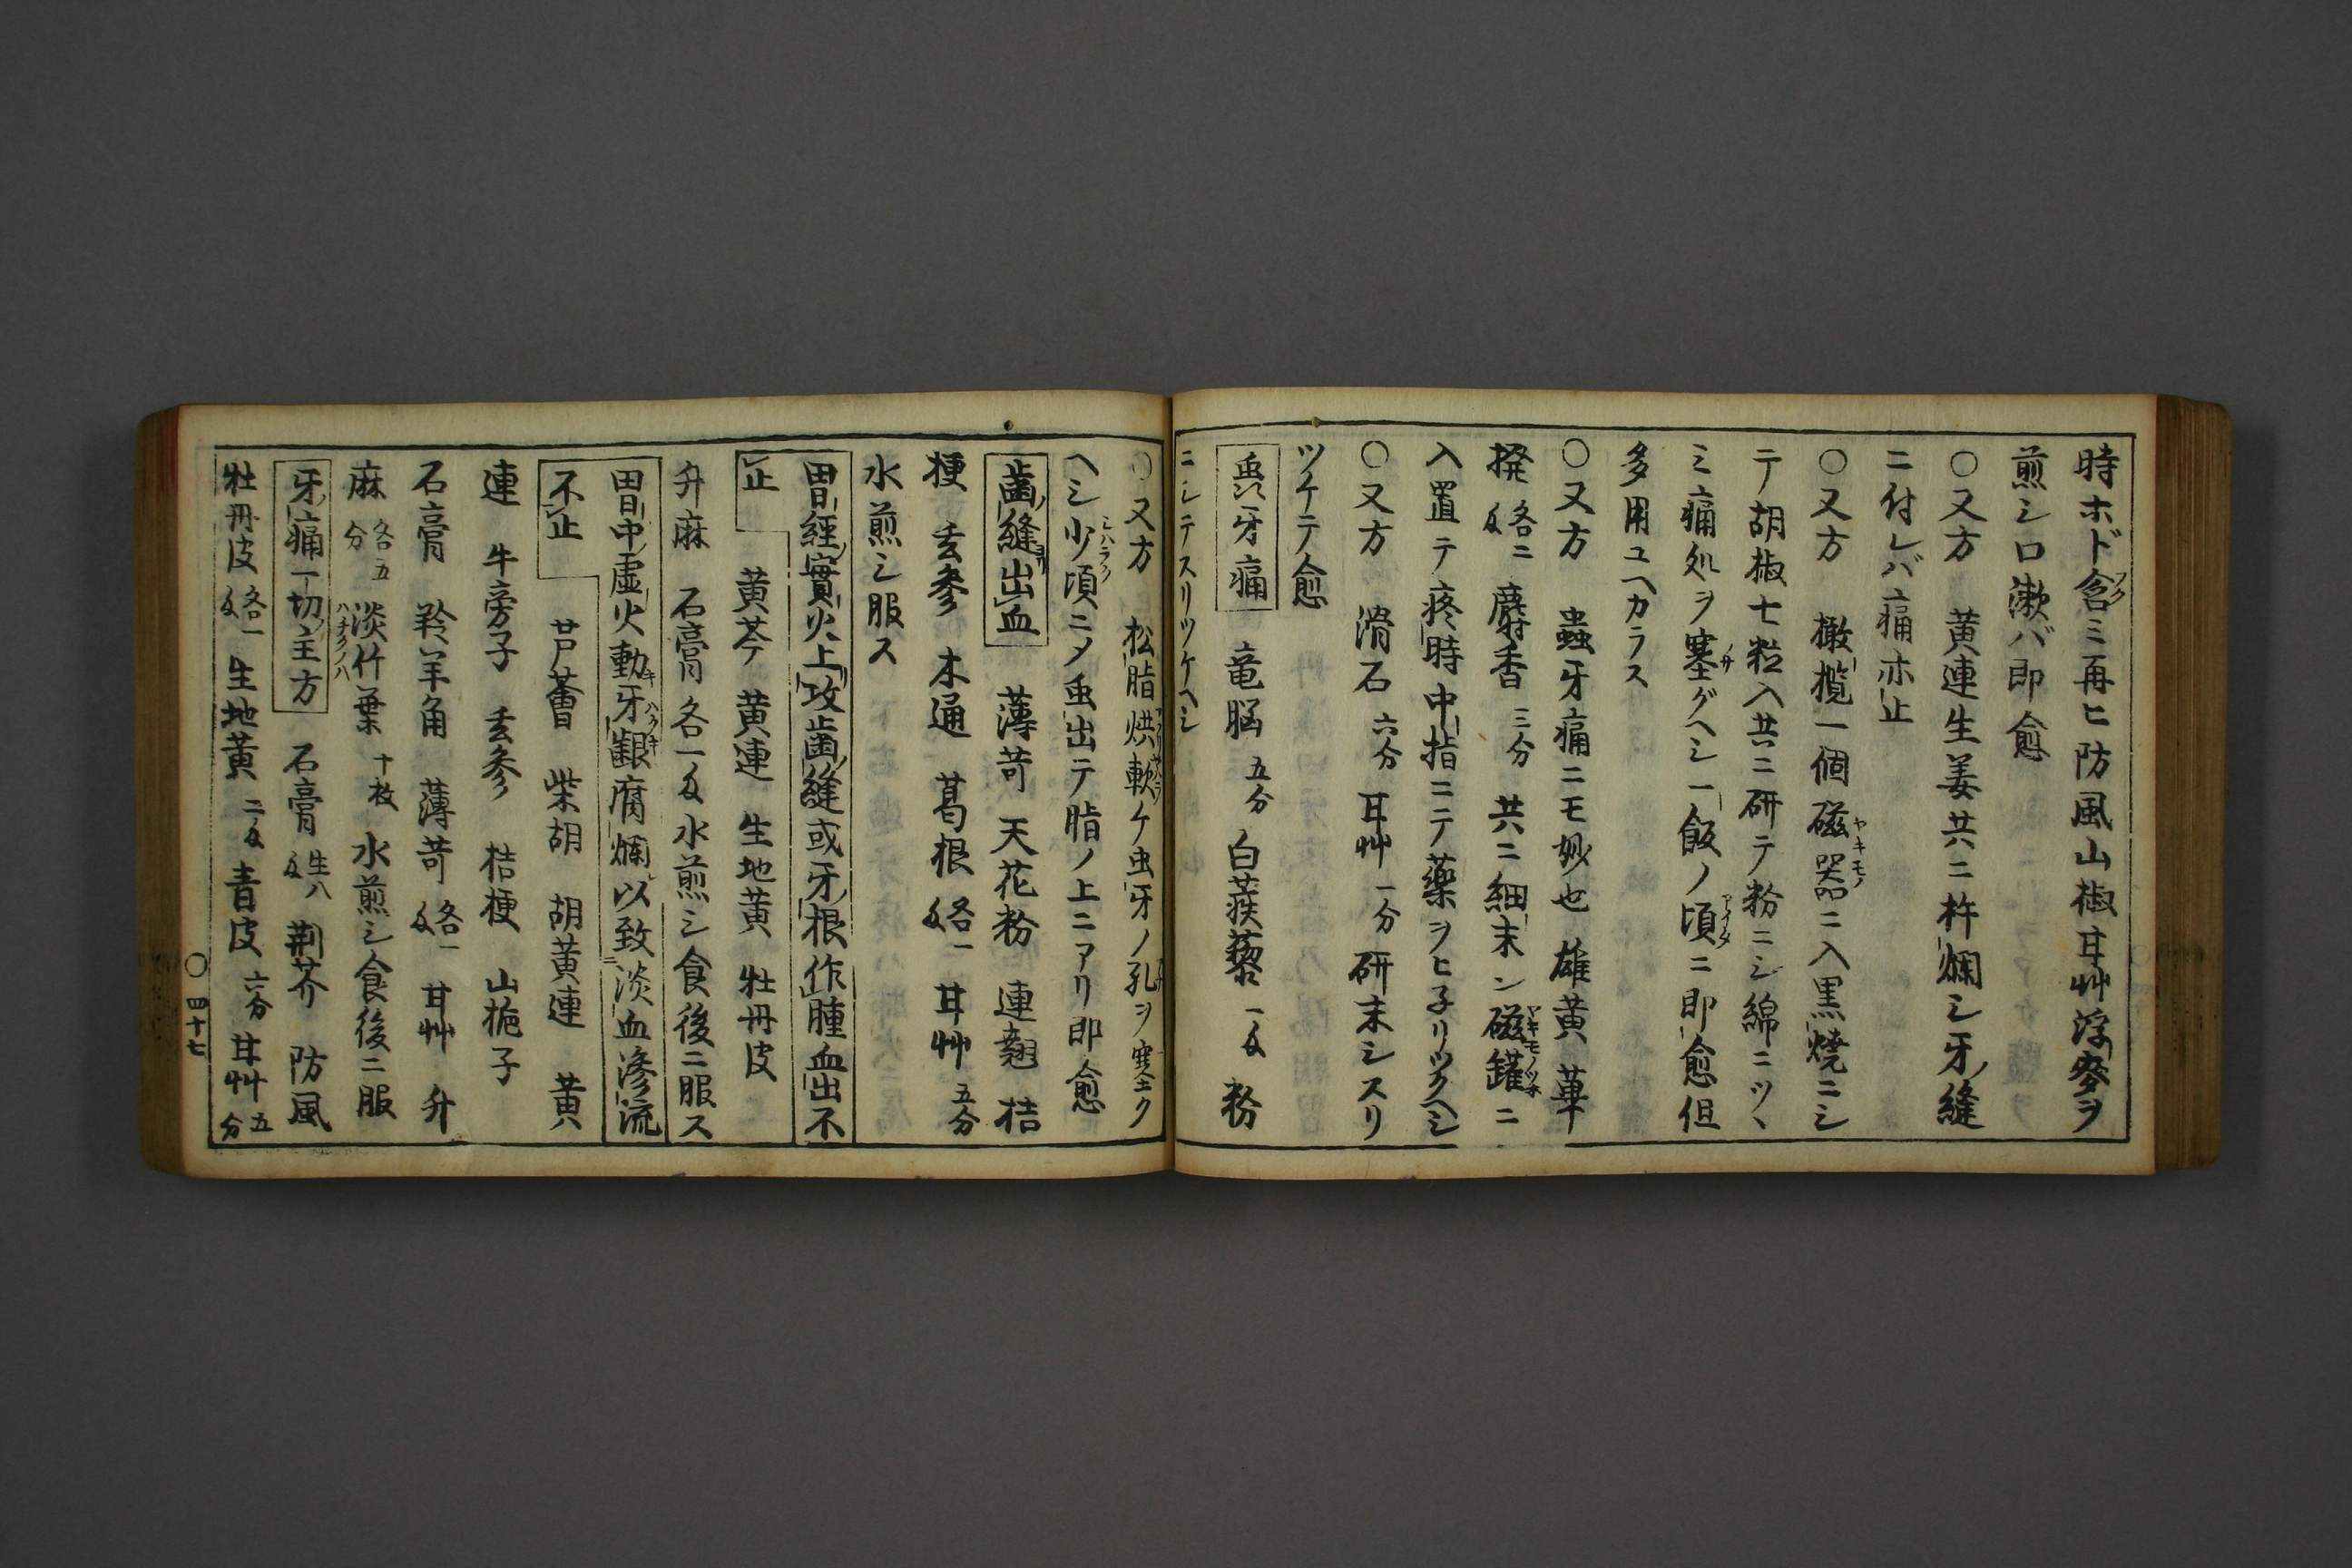 時ホド含ミ再ヒ防風山椒耳艸浮麥ヲ
煎シ口漱バ即愈
○又方 黄連生姜共ニ杵爛シ牙縫
ニ付レバ痛亦止
○又方 橄欖一個磁器ニ入黒焼ニシ
テ胡椒七粒入共ニ研テ粉ニシ綿ニツヽ
ミ痛処ヲ塞グヘシ一飯ノ頃ニ即愈但
多用ユヘカラス
○又方 蟲牙痛ニモ妙也 雄黄 蓽
撥 各二匁 麝香 三分 共ニ細末シ磁罐ニ
入置テ疼時中指ニテ藥ヲヒ子リツクヘシ
○又方 滑石 六分 耳艸 一分 研末シスリ
ツケテ愈
虫牙痛 竜脳 五分 白蒺藜 一匁 粉
ニシテスリツケヘシ
○又方 松脂烘軟ケ虫牙ノ孔ヲ塞ク
ヘシ少頃ニメ虫出テ脂ノ上ニアリ即愈
歯縫出血 薄荷 天花粉 連翹 桔
梗 玄參 木通 葛根 各一匁 耳艸 五分
水煎シ服ス
胃經實火上攻歯縫或牙根作腫血出不
止 黄芩 黄連 生地黄 牡丹皮
升麻 石膏 各一匁 水煎シ食後ニ服ス
胃中虚火動牙齦腐爛以致淡血滲流
不止 芦薈 柴胡 胡黄連 黄
連 牛旁子 玄參 桔梗 山梔子
石膏 羚羊角 薄荷 各一匁 耳艸 升
麻 各五分 淡竹葉 十枚 水煎シ食後ニ服
牙痛一切主方 石膏 生八匁 荆芥 防風
牡丹皮 各一匁 生地黄 二匁 青皮 六分 甘艸 五分
○四十七